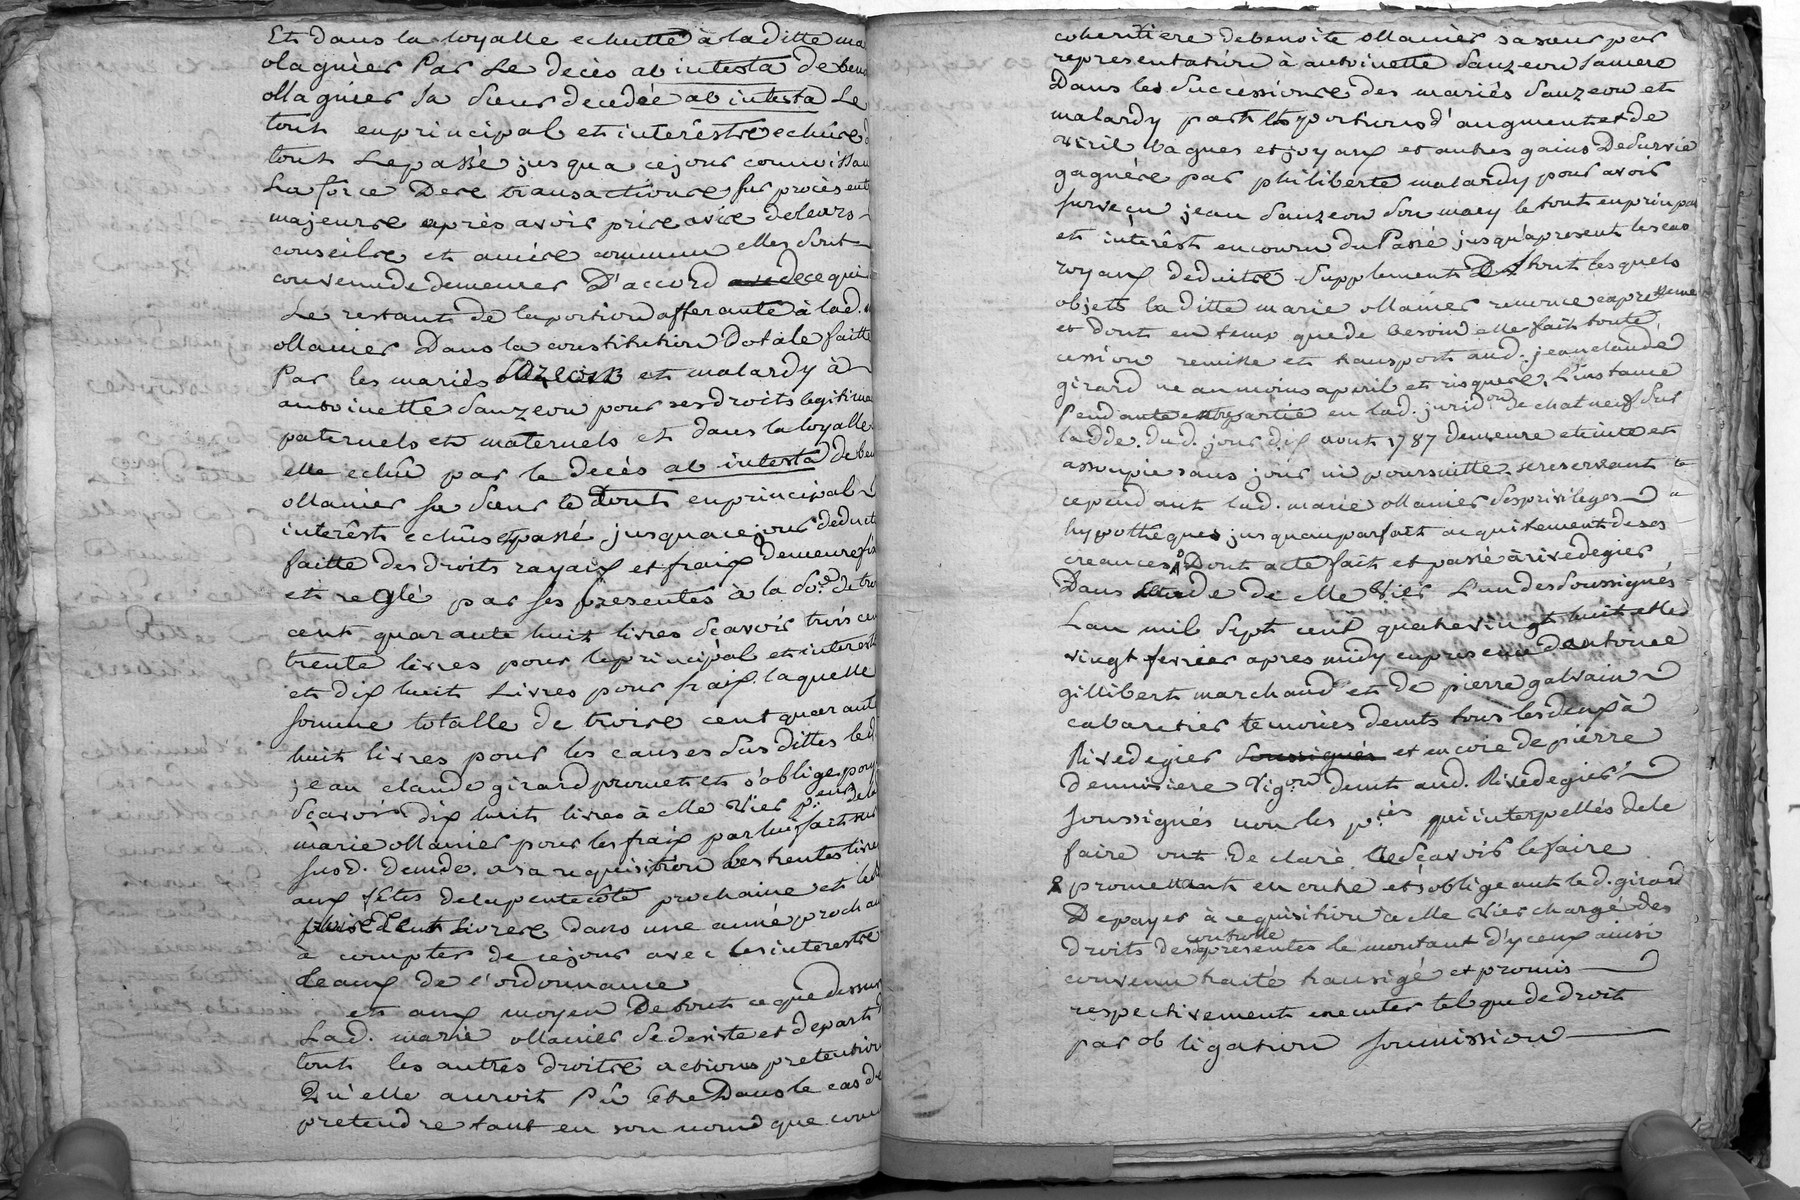 Et dans la loyalle echutte à laditte ma
ollagnier Par Le decès ab intesta de beno
ollagnier sa sœur decedée ab intesta Le
tout en principal et interêstre echûre
tout Le passé jusqua ce jour connoissan
La force Dere transactionre sur procès entre
majeurre après avoir prire avire de leurs
conseilre et amire commun elles sont
convenu de demeurer D'accord de ce qui
Le restant de la portion afferante à lad. m
ollanier Dans la constitution Dotale faitte
Par les mariés Sauzeon et malardy à
antoinette Sauzeon pour ses droits legitima
paternels et maternels et dans la loyalle
elle echû par le decès ab intesta de ben
ollanier sa sœur le tout en principal
interêsts echûs et passé jusqua ce jour deduct
faitte des droits rayaix et fraix demeure fix
et reglé par ses presentes à la so.e de troi
cent quarante huit livres sçavoir trois cen
trente livres pour le principal et interest
et dix huit Livres pour fraix laquelle
somme totalle de troire cent quarant
huit livres pour les causes sus dittes led
jean claude girard promet et s'oblige pay
sçavoir dix huit livres à Me Vier p.eur de la
màrie ollanier pour les fraix par lui faits sur
susd. demde. a sa requisition les trentes livre
aux fêtes de la pentecôte prochaine et les
troire cent Livrere dans une année prochai
à compter de ce jour avec les interestre
teaux de l'ordonnance
et aux moyen De tout ce que dessus
Lad. marie ollanier se desiste et depart d
tout les autres droitre actions pretention
Qu'elle auroit Pû être Dans le cas de
pretendre tant en son nomd que com
coheritiere de benoite ollanier sa sœur par
representation à antoinette Sauzeon sa mere
Dans les Successionre des mariés Sauzeon et
malardy part et portions d'augment et de
viril bagues et joyaux et autres gains de survie
gagnére par philiberte malardy pour avoir
survecu jean Sauzeon son mary le tout en prin pal
et interêst encouru du Passé jusqu'a present les cas
royaux deduitre Supplement De tout lesquels
objets la ditte marie ollanier renonce expressemen
et dont en temx que de besoin elle fait toute
cession remisse et transport aud. jean claude
girard ne anmoins aperil et risquere L'instance
Pendante entre partie en lad. jurid.on de chatneuf sur
la dde. du d. jour dix aout 1787 demeure eteinte et
assoupie sans jour ni poursuitte se reservant
cependant lad. marie ollanier ses privileges
hypothéques jusquau parfait acquittement de ses
creances Dont acte fait et passé à rivedegier
Dans etude de Me Vier L'un des soussignés
Lan mil sept cent quatre vingt huit et le
vingt fevrier apres midy en presence d'antoinee
gillibert marchand et de pierre galvain
cabaretier temoires demts tous les deux à
Rivedegier soussignés et encore de pierre
demoisiere Vig.on demt aud. Rivedegier
soussignés non les p.ies qui interpellés de le
faire ont declaré ne sçavoir le faire
promettant en outre et s'obligeant le d. girard
De payer à requisition a Me Vier chargé des
droits des controlle presentes le montant d'yceux ainsi
convenu traité transigé et promis
respectivement executer tel que de droit
par obligation soumission